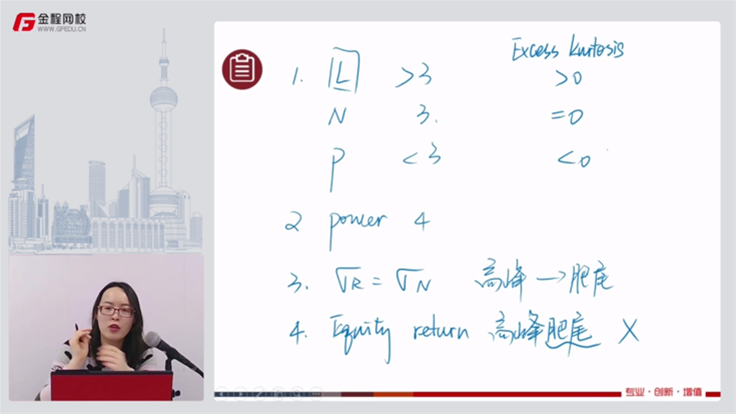 金程网校
WWW.GFEDU.CN
Excess kurtosis
1. L >3 >0
N 3. =0
P <3 <0
2 power 4
3. σR = σN 高峰 → 肥尾
4. Equity return 高峰肥尾 X
专业·创新·增值